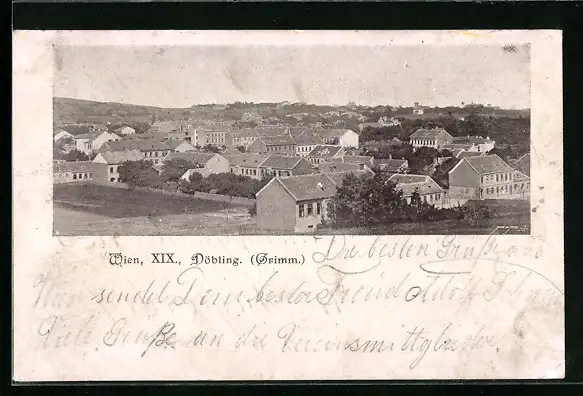 Wien, XIX., Döbling. (Grimm.) Die besten Grüße aus
Wien sendet Dein bester Freund Adolf
Viele Grüße an die Vereinsmitglieder.